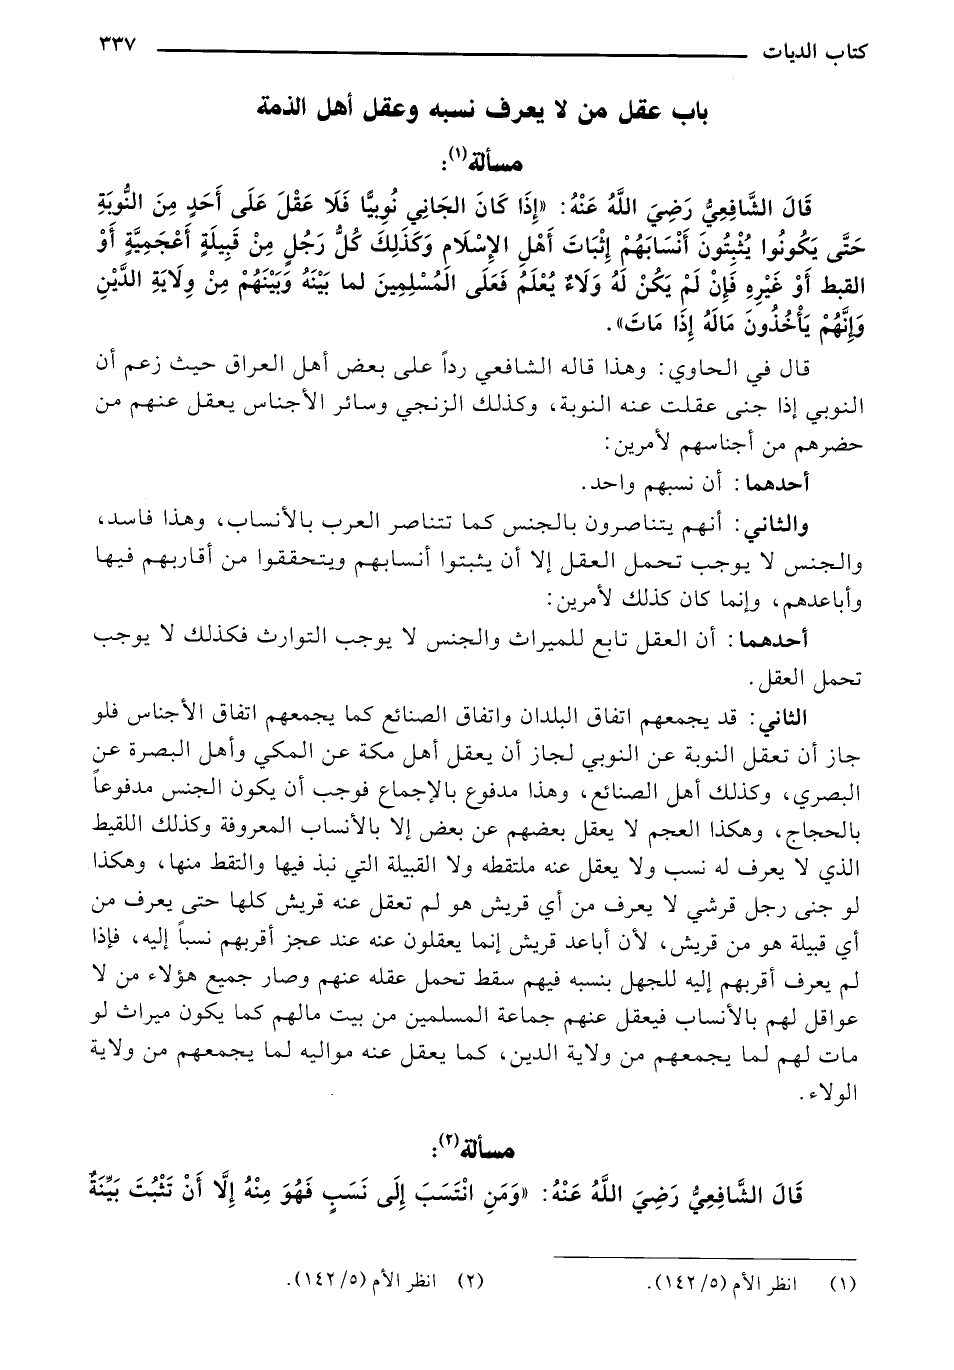 كتاب الديات ٣٣٧
باب عقل من لا يعرف نسبه وعقل أهل الذمة
مسألة(١):
قَالَ الشَّافِعِيُّ رَضِيَ اللَّهُ عَنْهُ: «إِذَا كَانَ الجَانِي نُوبِيًّا فَلَا عَقْلَ عَلَى أَحَدٍ مِنَ النُّوبَةِ
حَتَّى يَكُونُوا يُثْبِتُونَ أَنْسَابَهُمْ إِثْبَاتَ أَهْلِ الإِسْلَامِ وَكَذَلِكَ كُلُّ رَجُلٍ مِنْ قَبِيلَةٍ أَعْجَمِيَّةٍ أَوْ
القبط أَوْ غَيْرِهِ فَإِنْ لَمْ يَكُنْ لَهُ وَلَاءٌ يُعْلَمُ فَعَلَى الْمُسْلِمِينَ لما بَيْنَهُ وَبَيْنَهُمْ مِنْ وِلَايَةِ الدَّيْنِ
وَإِنَّهُمْ يَأْخُذُونَ مَالَهُ إِذَا مَاتَ».
قال في الحاوي: وهذا قاله الشافعي رداً على بعض أهل العراق حيث زعم أن
النوبي إذا جنى عقلت عنه النوبة، وكذلك الزنجي وسائر الأجناس يعقل عنهم من
حضرهم من أجناسهم لأمرين:
أحدهما: أن نسبهم واحد.
والثاني: أنهم يتناصرون بالجنس كما تتناصر العرب بالأنساب، وهذا فاسد،
والجنس لا يوجب تحمل العقل إلا أن يثبتوا أنسابهم ويتحققوا من أقاربهم فيها
وأباعدهم، وإنما كان كذلك لأمرين:
أحدهما: أن العقل تابع للميراث والجنس لا يوجب التوارث فكذلك لا يوجب
تحمل العقل.
الثاني: قد يجمعهم اتفاق البلدان واتفاق الصنائع كما يجمعهم اتفاق الأجناس فلو
جاز أن تعقل النوبة عن النوبي لجاز أن يعقل أهل مكة عن المكي وأهل البصرة عن
البصري، وكذلك أهل الصنائع، وهذا مدفوع بالإجماع فوجب أن يكون الجنس مدفوعاً
بالحجاج، وهكذا العجم لا يعقل بعضهم عن بعض إلا بالأنساب المعروفة وكذلك اللقيط
الذي لا يعرف له نسب ولا يعقل عنه ملتقطه ولا القبيلة التي نبذ فيها والتقط منها، وهكذا
لو جنى رجل قرشي لا يعرف من أي قريش هو لم تعقل عنه قريش كلها حتى يعرف من
أي قبيلة هو من قريش، لأن أباعد قريش إنما يعقلون عنه عند عجز أقربهم نسباً إليه، فإذا
لم يعرف أقربهم إليه للجهل بنسبه فيهم سقط تحمل عقله عنهم وصار جميع هؤلاء من لا
عواقل لهم بالأنساب فيعقل عنهم جماعة المسلمين من بيت مالهم كما يكون ميراث لو
مات لهم لما يجمعهم من ولاية الدين، كما يعقل عنه مواليه لما يجمعهم من ولاية
الولاء.
مسألة(٢):
قَالَ الشَّافِعِيُّ رَضِيَ اللَّهُ عَنْهُ: «وَمَنِ انْتَسَبَ إِلَى نَسَبٍ فَهُوَ مِنْهُ إِلَّا أَنْ تَثْبُتَ بَيِّنَةٌ
(١) انظر الأم (١٤٢/٥). (٢) انظر الأم (١٤٢/٥).